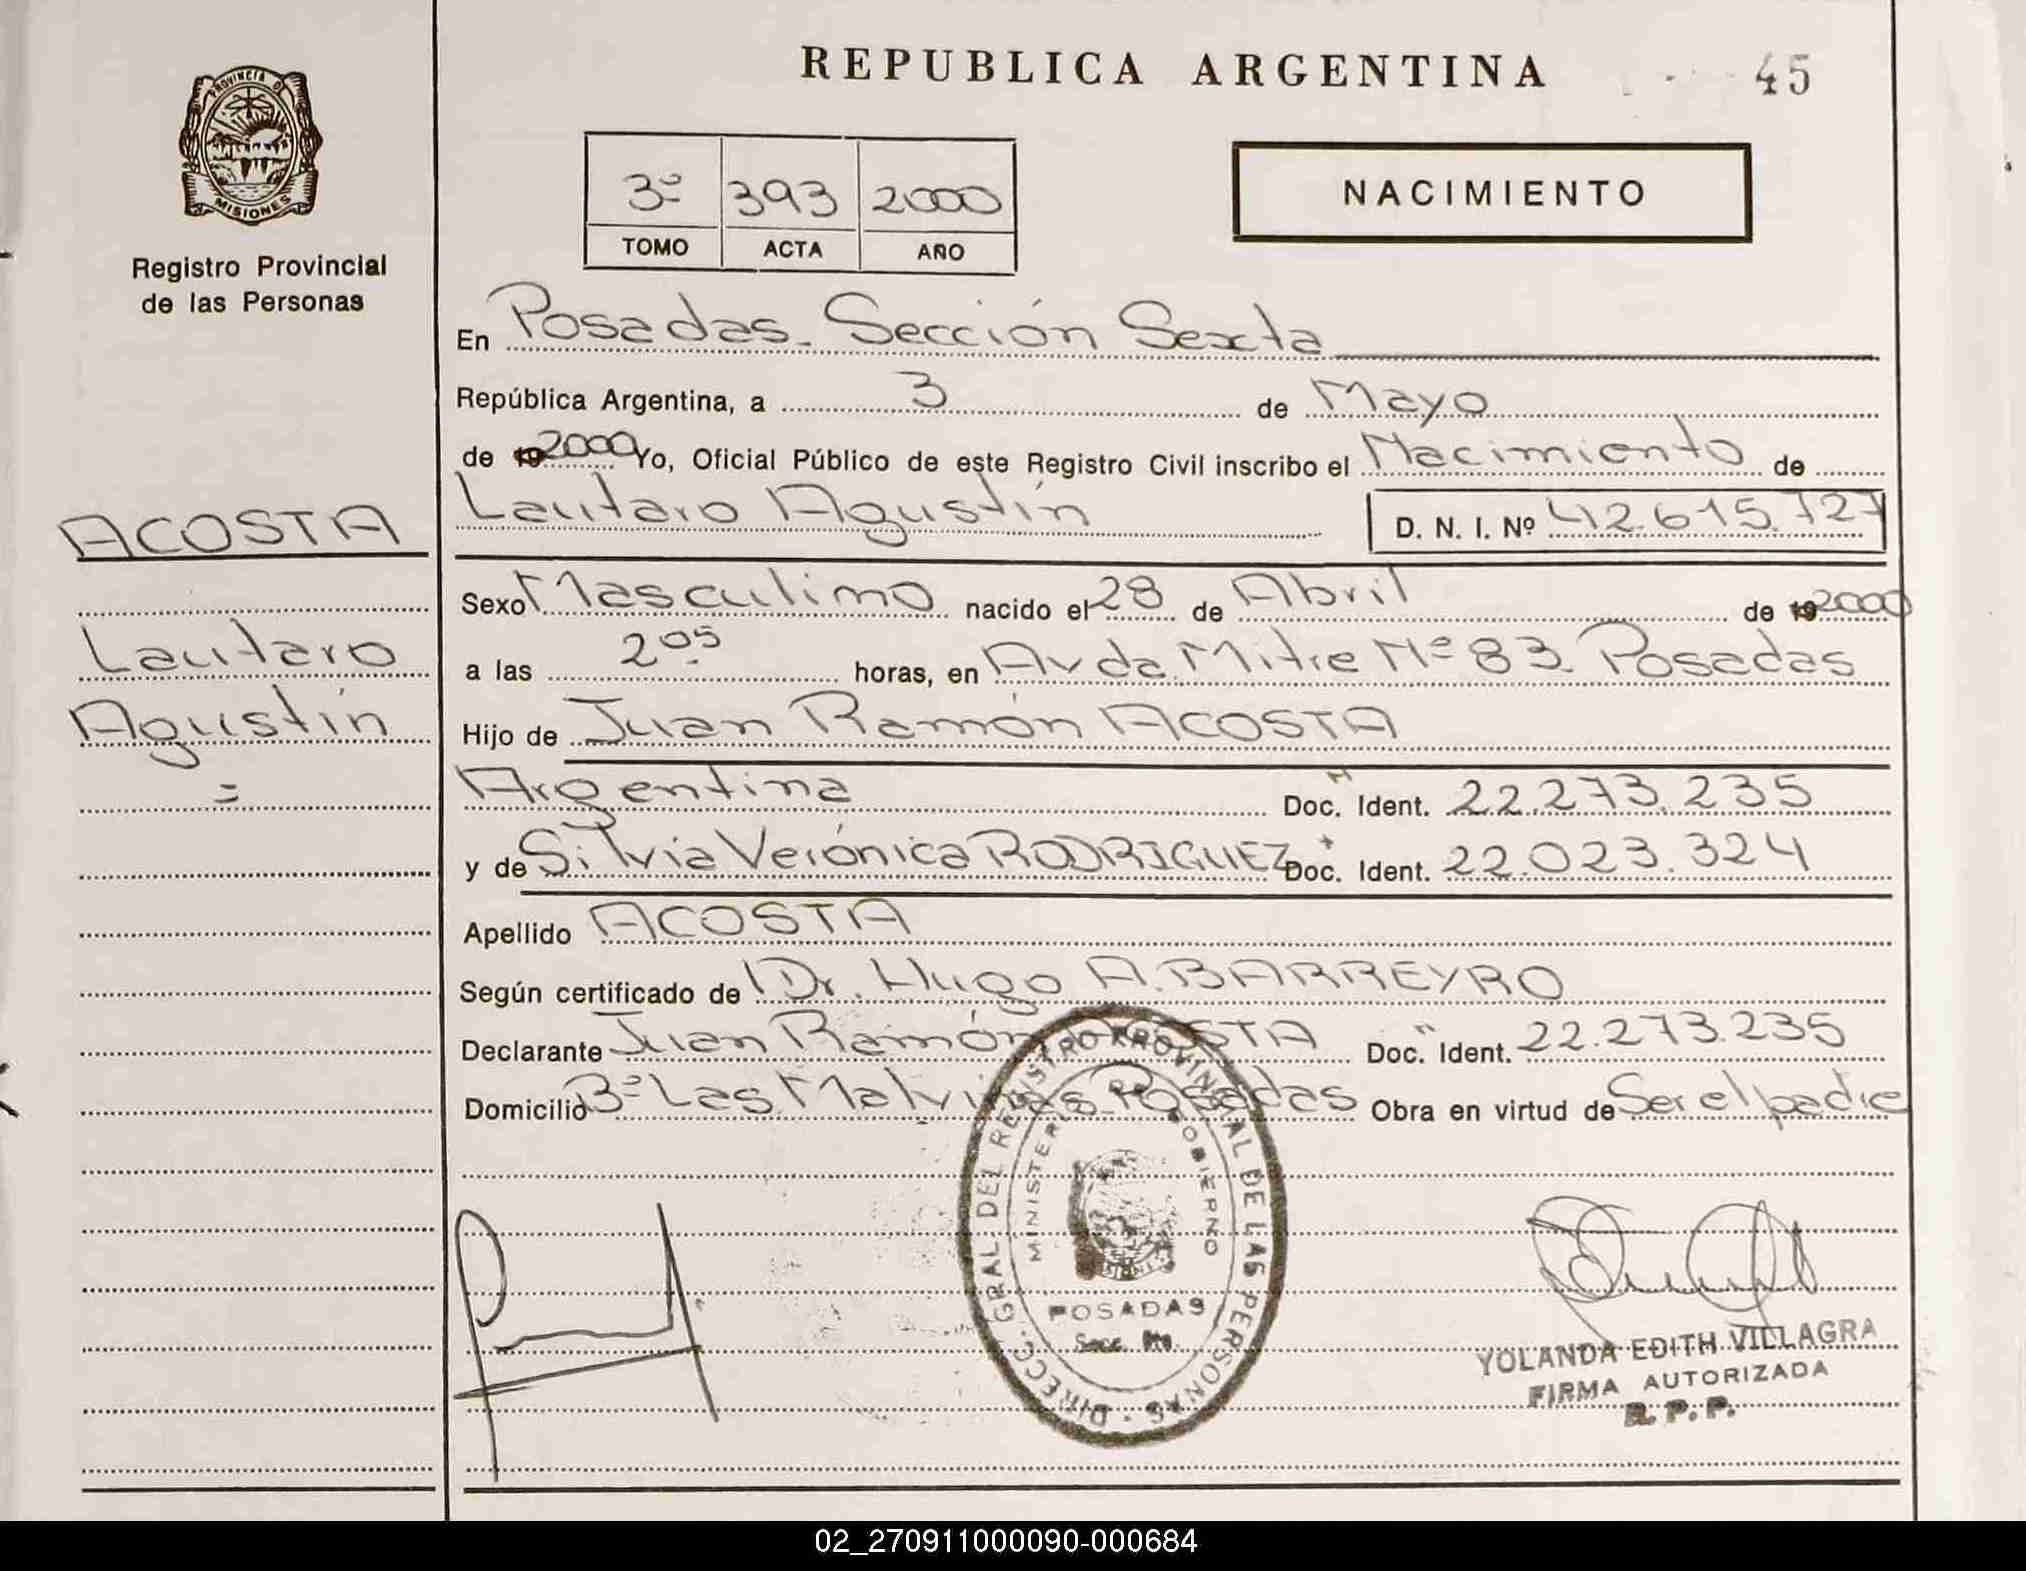 REPUBLICA ARGENTINA
45
PROVINCIA D
MISIONES
Registro Provincial
de las Personas
3º 393 2000
TOMO ACTA AÑO
NACIMIENTO
En Posadas - Sección Sexta
República Argentina, a 3 de Mayo
de 19 2000 Yo, Oficial Público de este Registro Civil inscribo el Nacimiento de
Lautaro Agustín D. N. I. Nº 42.615.727
ACOSTA
Lautaro
Agustín
=
Sexo Masculino nacido el 28 de Abril de 19 2000
a las 2 05 horas, en Avda. Mitre Nº 83. Posadas
Hijo de Juan Ramón ACOSTA
Argentina Doc. Ident. 22.273.235
y de Silvia Verónica RODRIGUEZ Doc. Ident. 22.023.324
Apellido ACOSTA
Según certificado de Dr. Hugo A. BARREYRO
Declarante Juan Ramón ACOSTA Doc. Ident. 22.273.235
Domicilio Bº Las Malvinas - Posadas Obra en virtud de Ser el padre
DIRECC. GRAL DEL REGISTRO PROVINCIAL DE LAS PERSONAS
MINISTERIO DE GOBIERNO
POSADAS
YOLANDA EDITH VILLAGRA
FIRMA AUTORIZADA
R. P. P.
02_270911000090-000684